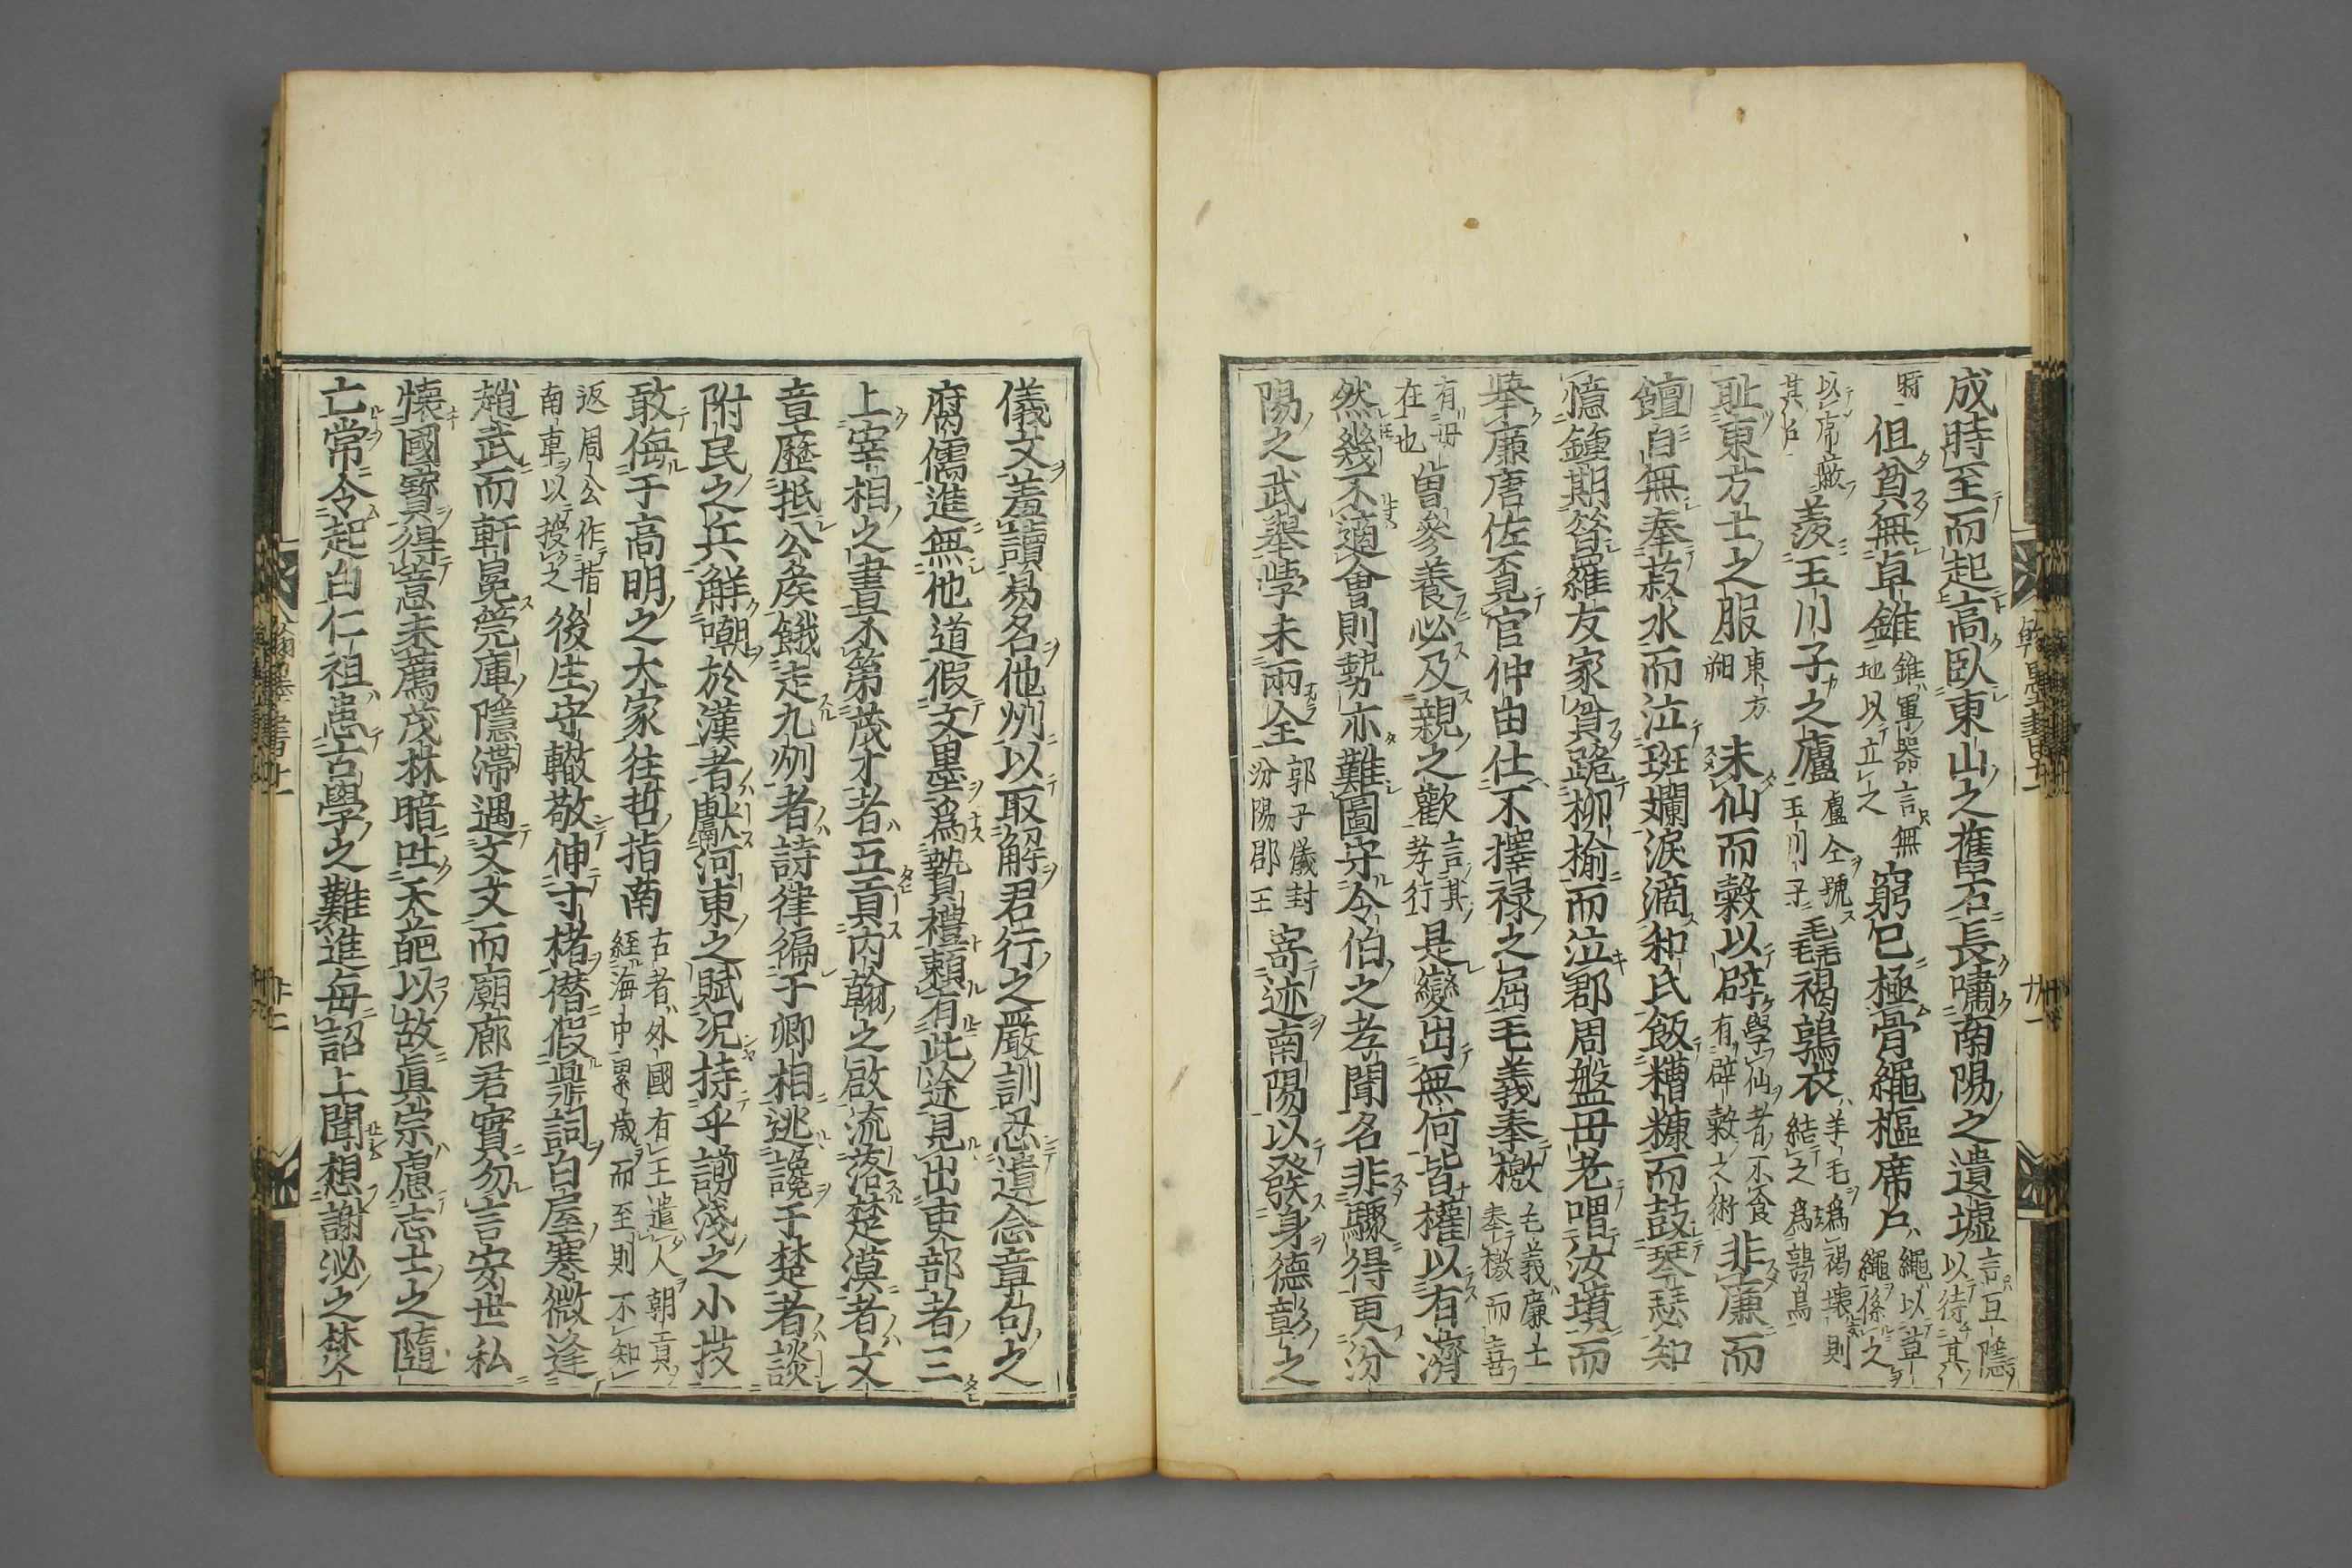 成時至而起高臥東山之舊石長嘯南陽之遺墟言互隱以待其
時但貧無卓錐錐軍器言無地以立之窮已極骨繩樞席户繩以草繩係之
以席蔽其戶羨玉川子之廬盧仝號玉川子毛褐鶉衣羊毛爲褐壊則結之爲鶉鳥
耻東方士之服東方朔未仙而穀以辟學仙者不食有辟穀之術非廉而
饘自無奉菽水而泣斑斕淚滴和氏飯糟糠而鼓琴瑟知
憶鍾期咎羅友家貧跪柳揄而泣郡周盤毋老喟汝墳而
擧廉唐佐覓官仲由仕不擇禄之屈毛義奉檄毛義廉士奉檄而喜
有毋在也曾參養必及親之歡言其孝行是變出無何皆權以有濟
然幾不適會則勢亦難圖守令伯之孝聞名非驟得更汾
陽之武擧學未兩全郭子儀封汾陽郡王寄迹南陽以發身德彰之
儀文羞讀易名他州以取解君行之嚴訓忍遺念章句之
腐儒進無他道假文墨爲贄禮頼有此途見出吏部者三
上宰相之書不第茂才者五貢内翰之啟流落楚漢者文
章歷抵公矦餓走九州者詩律徧于卿相逃讒于楚者談
附民之兵解嘲於漢者獻河東之賦况持乎謭淺之小技
敢侮于高明之大家往哲指南古者外國有王遣人朝貢經海中累歲而至則不知
返周公作指南車以授之後生守轍敬伸寸楮僭假鼎詞白屋寒微逢
趙武而軒冕筦庫隱滯遇文文而廊廟君實勿言安世私
懐國寳得蒠未薦茂林暗吐天葩以故眞宗慮志士之隨
亡常令起白仁祖患古學之難進毎詔上聞想謝泌之焚